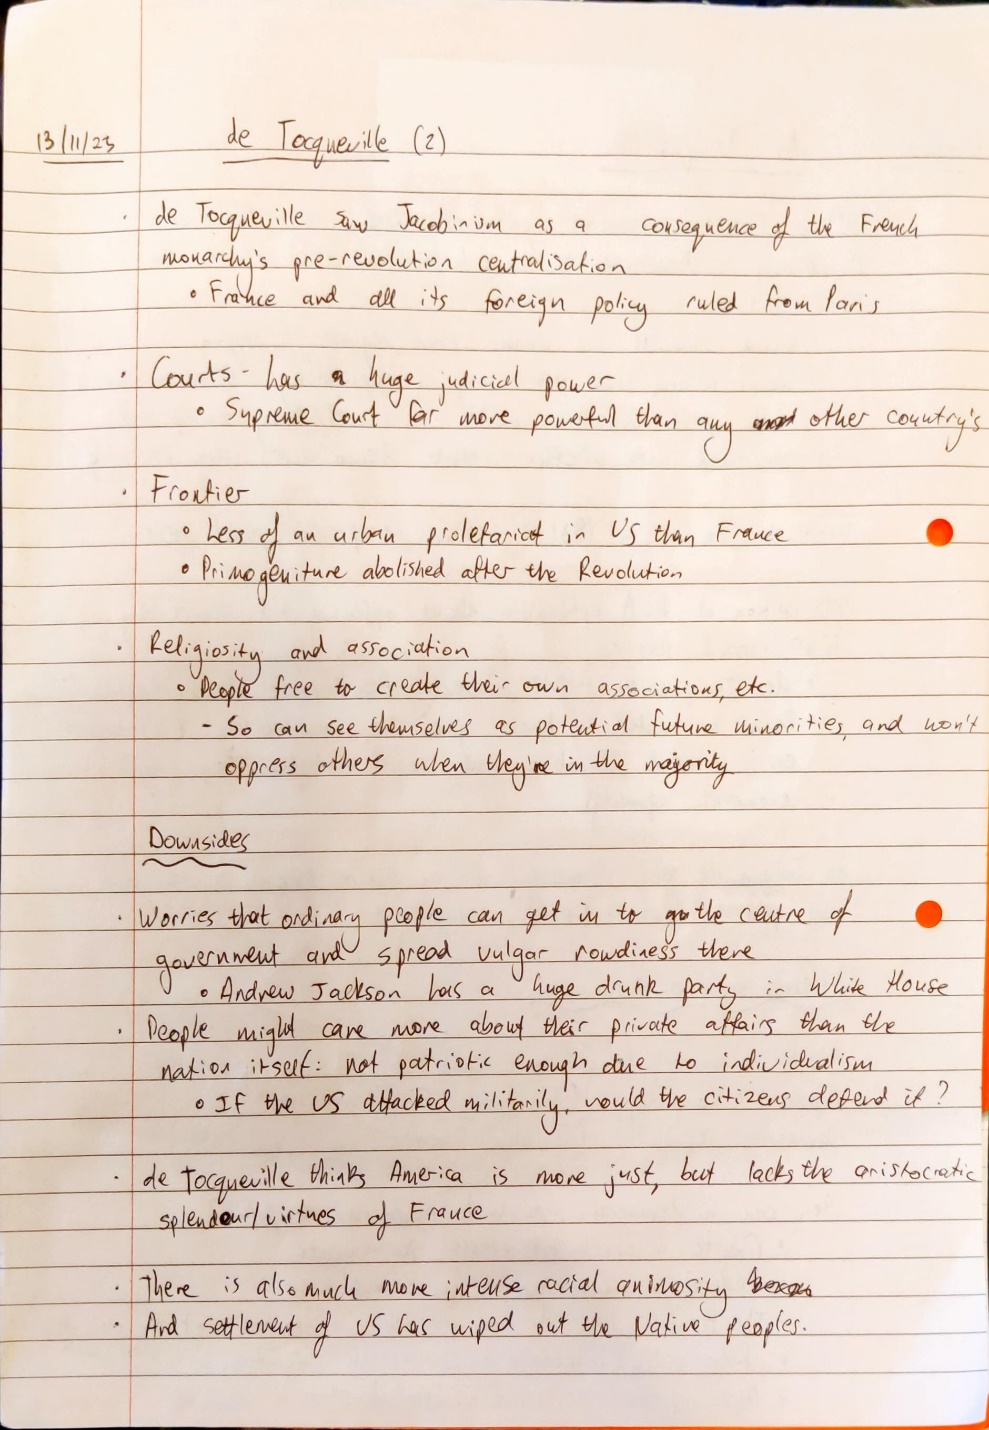 13/11/23 de Tocqueville (2)
· de Tocqueville saw Jacobinism as a consequence of the French
monarchy's pre-revolution centralisation
• France and all its foreign policy ruled from Paris
· Courts - has a huge judicial power
• Supreme Court far more powerful than any other country's
· Frontier
• Less of an urban proletariat in US than France
• Primogeniture abolished after the Revolution
· Religiosity and association
• People free to create their own associations, etc.
- So can see themselves as potential future minorities, and won't
oppress others when they're in the majority
Downsides
· Worries that ordinary people can get in to the centre of
government and spread vulgar rowdiness there
• Andrew Jackson has a huge drunk party in White House
· People might care more about their private affairs than the
nation itself: not patriotic enough due to individualism
• If the US attacked militarily, would the citizens defend it?
· de Tocqueville thinks America is more just, but lacks the aristocratic
splendour/virtues of France
· There is also much more intense racial animosity
· And settlement of US has wiped out the Native peoples.